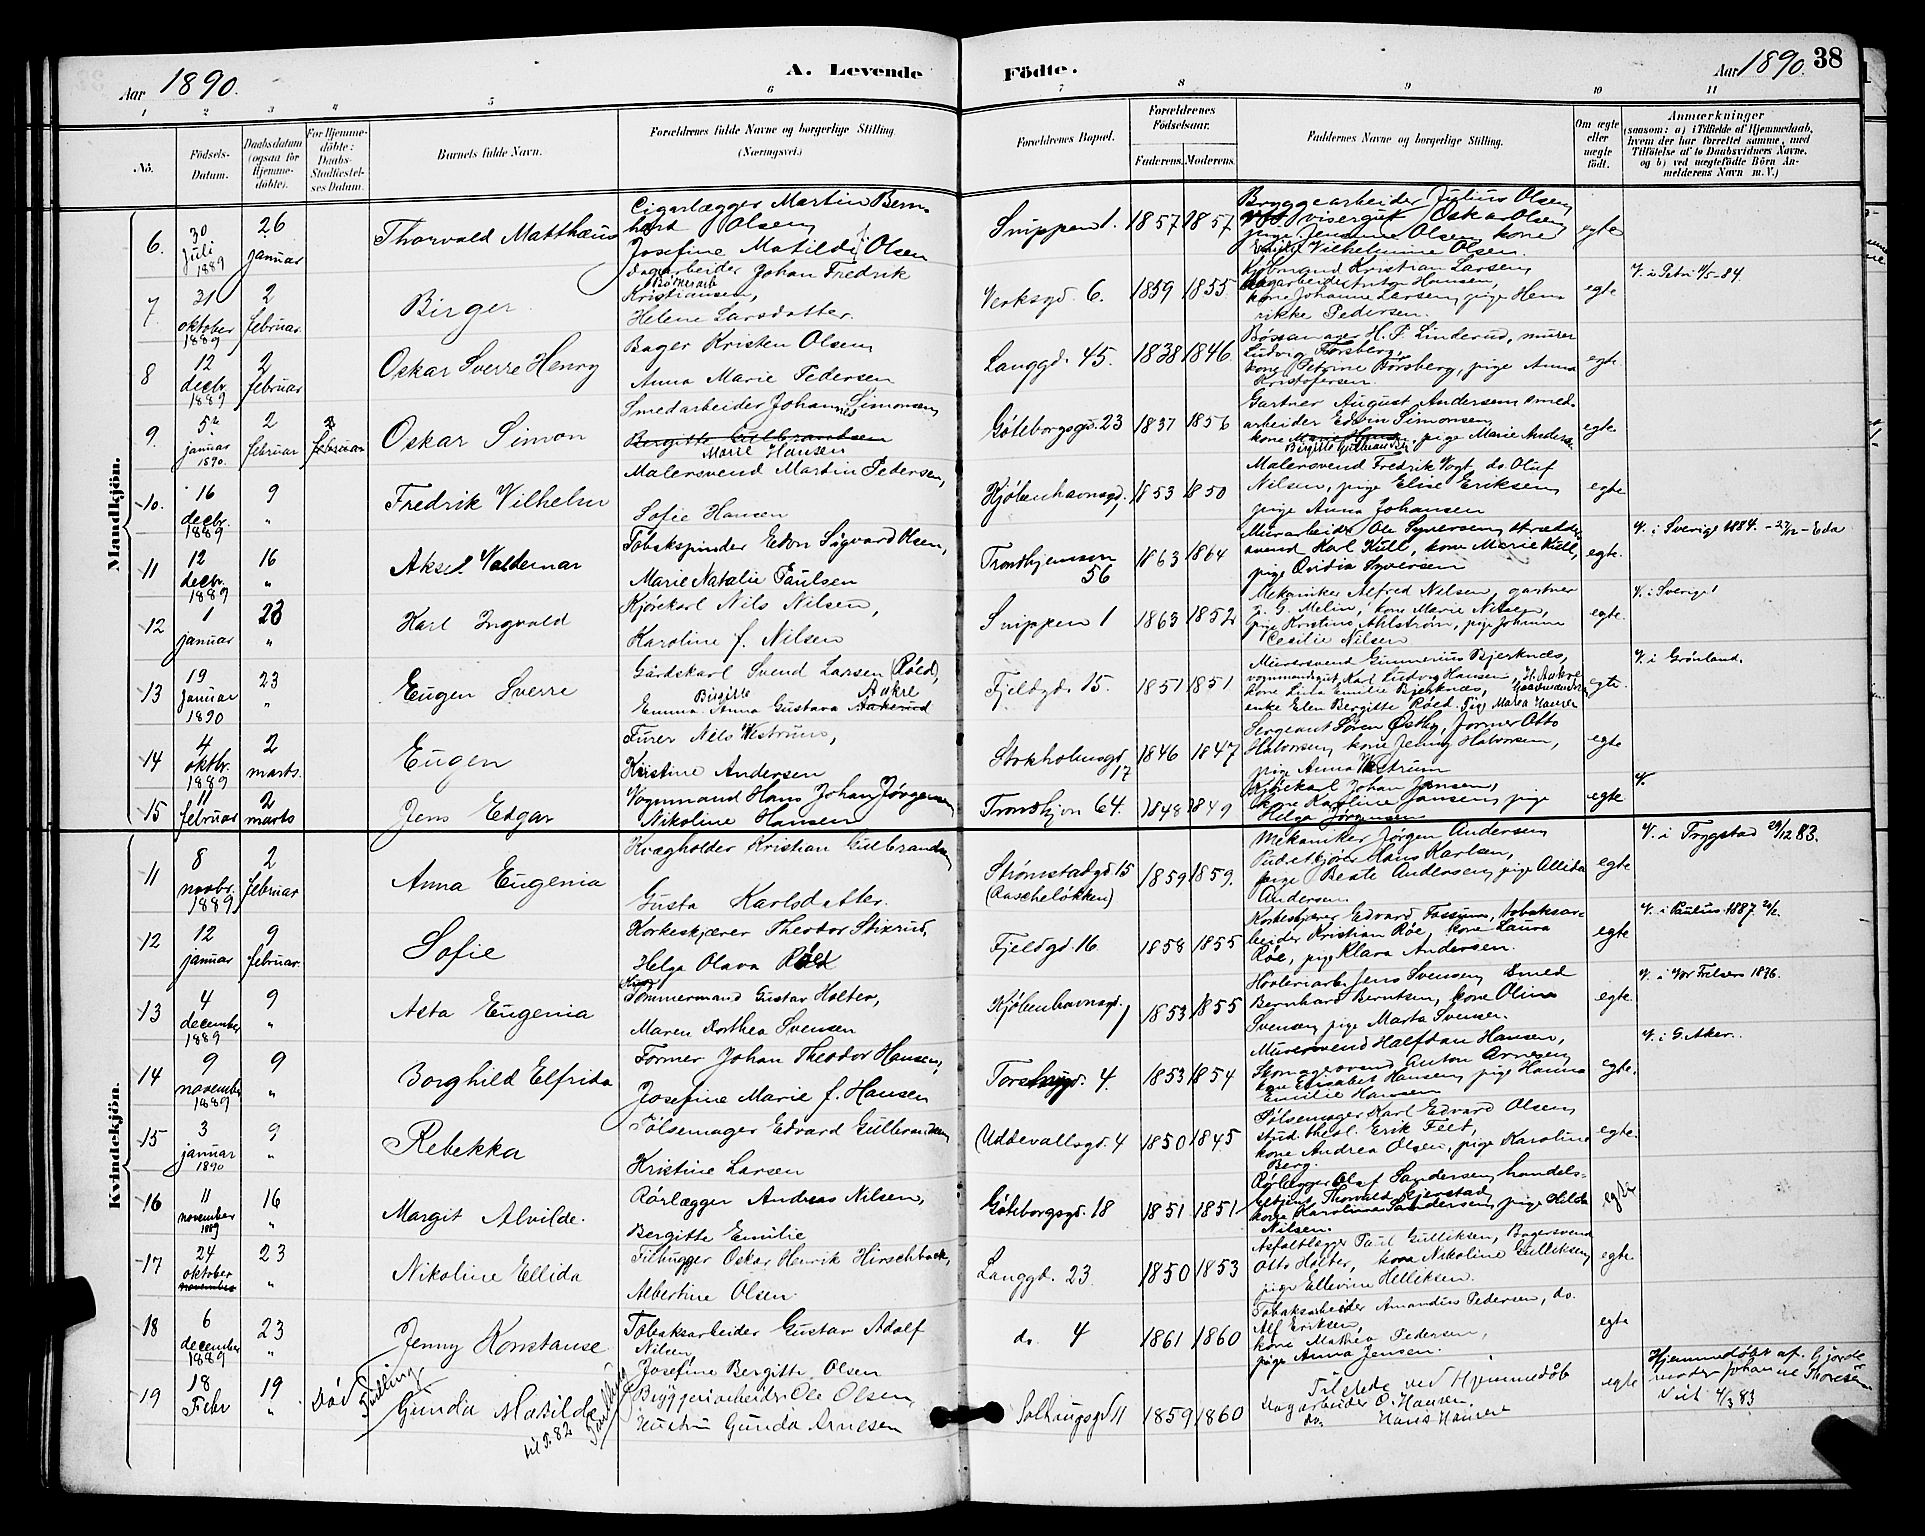 Aar 1890.
A. Levende
Födte.
Aar 1890.
38
1 2 3 4 5 6 7 8 9 10 11
No.
Födsels-Datum.
Daabsdatum (ogsaa for Hjemmedöbte).
For Hjemmedöbte: Daabs-Stadfæstelses Datum.
Barnets fulde Navn.
Forældrenes fulde Navne og borgerlige Stilling. (Næringsvei.)
Forældrenes Bopæl.
Forældrenes Födselsaar.
Faderens. Moderens.
Faddernes Navne og borgerlig Stilling.
Om ægte eller uægte födt.
Anmærkninger
(saasom: a) i Tilfælde af Hjemmedaab, hvem der har forrettet samme, med Tilföielse af to Daabsvidners Navne, og b) ved uægtefödte Börn Anmelderens Navn m. V.)
Mandkjön.
6. 30 Juli 1889 26 januar Thorvald Matthæus
Cigarlægger Martin Bernhard Olsen
Josefine Matilde f. Olsen
Snippen 1. 1857 1857
Bryggearbeider Julius Olsen
visergut Oskar Olsen
pige Jensine Olsen kone
Emilie Vilhelmine Olsen.
egte
7. 31 oktober 1889 2 februar Birger
dagarbeider Johan Fredrik
Kristiansen,
Helene Larsdatter.
Verksgd. 6. 1859 1855
Kjöbmand Kristian Larsen,
dagarbeider Anton Hansen,
kone Johanne Larsen, pige Henrikke Pedersen.
egte V. i Petri 4/5-84.
8 12 decbr. 1889 2 februar Oskar Sverre Henry
Bager Kristen Olsen
Anna Marie Pedersen
Langgd. 45. 1838 1846
Børsemager H. P. Linderud, murer
Ludvig Forsberg,
kone Petrine Forsberg, pige Anna
Kristofersen.
egte
9. 5te januar 1890. 2 februar 2 februar Oskar Simon
Smedarbeider Johannes Simonsen
Bergitte Gulbrandsen
Marie Hansen
Göteborgsgd. 23 1837 1856
Gartner August Andersen smedarbeider Edvin Simonsen
kone Marie Hansen, pige Marie Andersen
Birgitte Gulbrandsen
egte
10. 16 decbr. 1889 9 " Fredrik Vilhelm
Malersvend Martin Pedersen,
Sofie Hansen
Kjöbenhavnsgd. 1853 1850
Malersvend Fredrik Vogt, do. Oluf
Nilsen, pige Elise Eriksen
pige Anna Johansen
egte
11 12 decbr. 1889 16 " Aksel Valdemar
Tobakspinder Edvn Sigvard Olsen,
Marie Natalie Paulsen
Trondhjemsvn 56 1863 1864
Murarbeider Ole Syversen skrædersvend Karl Kull, kone Marie Kull,
pige Ovidia Syversen
egte. V. i Sverige 1884. - 27/12 - Eda
12 1 januar 23 " Karl Ingvald
Kjörekarl Nils Nilsen,
Karoline f. Nilsen
Snippen 1 1863 1852
Mekaniker Alfred Nilsen, gartner
J. G. Melin, kone Marie Nilsen,
pige Kristine Ahlström, pige Johanne
Cecilie Nilsen
egte. V. i Sverige!
13 19 januar 1890 23 " Eugen Sverre
Gårdskarl Svend Larsen (Röed),
Emma Birgitte Anna Gustava Aakre Aakerud
Fjeldgd. 15. 1851 1851
Murersvend Gunnerius Bjerknæs,
vognmandsgut Karl Ludvig Hansen,
kone Lina Emilie Bjerknæs,
enke Elen Bergitte Röed. Pige Marea Hansen
egte. V. i Grönland.
14 4 oktbr. 1889 2 marts Eugen
Furer Nils Westrum,
Kristine Andersen
Stokholmsgd. 17 1846 1847
Sergeant Sören Østby, Former Otto
Halvorsen, kone Jenny Halvorsen,
pige Anna Westrum
egte
15 11 februar 2 marts Jens Edgar
Vognmand Hans Johan Jörgensen
Nikoline Hansen
Trondhjvn 64. 1848 1849
Johan Jansen,
kone Karoline Jansen, pige
Helga Jörgensen
egte V.
Kvindekjön.
11 8 novbr. 1889 2 februar Anna Eugenia
Kvægholder Kristian Gulbrandsen
Gusta Karlsdatter.
Strömstadgd 15 (Rascheløkken) 1859 1859.
Mekaniker Jörgen Andersen
Hans Karlsen,
pige Beate Andersen, pige Allida
Andersen
egte V. i Trygstad 29/12 83.
12 12 januar 9 februar. Sofie
Korkeskjærer Theodor Stixrud,
Helga Olava Röed
Fjeldgd. 16 1858 1855
Korkeskjærer Edvard Fossum, tobaksarbeider Kristian Röe, kone Laura
Röe, pige Klara Andersen.
egte V. i Paulus 1887
13 4 december 1889 9 " Asta Eugenia
Tömmermand Gustav Holter,
Maren Dorthea Svensen
Kjöbenhavnsgd. 1 1853 1855
Høvleriarb. Jens Svensen, Smed
Bernhard Berntsen, kone Oline
Svensen, pige Marta Svensen.
egte V. i Vor Frelsers 1876.
14 9 november 1889 9 " Borghild Elfrida
Former Johan Theodor Hansen,
Josefine Marie f. Hansen
4. 1853 1854
Murersvend Halfdan Hansen,
Skomagersvend Anton Arnesen
kone Elisabet Hansen, pige Hanna
Emilie Hansen
egte. V. i G. Aker.
15 3 januar 1890 9 " Rebekka
Pölsemager Edvard Gulbrandsen
Kristine Larsen
Uddevallagd. 4 1850 1845
Pölsemager Karl Edvard Olsen
stud. theol. Erik Feet,
kone Andrea Olsen, pige Karoline
Berg.
egte.
16 11 november 1889 16 " Margit Alvilde.
Rörlægger Andreas Nilsen,
Bergitte Emilie
Göteborgsgd. 18 1851 1851
Rörlægger Olaf Sandersen handelsbetjent Thorvald Gjerstad
kone Karoline Sandersen, pige Hilda
Nilsen.
egte
17 24 oktober november 23 " Nikoline Ellida
Filhugger Oskar Henrik Hirschback,
Albertine Olsen.
Langgd. 23. 1850 1853
Asfaltlægger Paul Gulliksen, Bagersvend
Otto Holter, kone Nikoline Gulliksen
pige Ellevine Helliksen.
egte
18 6 december 1889 23 " Jenny Konstanse
Tobaksarbeider Gustav Adolf
Nilsen,
Josefine Bergitte Olsen
do. 4 1861 1860
Tobaksarbeider Amandus Pedersen, do.
Alf Eriksen,
kone Mathea Pedersen,
pige Anna Jensen.
egte
19 18 Febr 19 " Död Tvilling Gunda Matilde Tvilling
til F. 82
Bryggeriarbeider Ole Olsen
Hustru Gunda Arnesen
11 1859 1860
Tilstede ved Hjemmedåb
Dagarbeider O. Hansen.
do. Hans Hansen
egte
Hjemmedöbt af Gjordemoder Johanne Thoresen
Viet 4/3 83